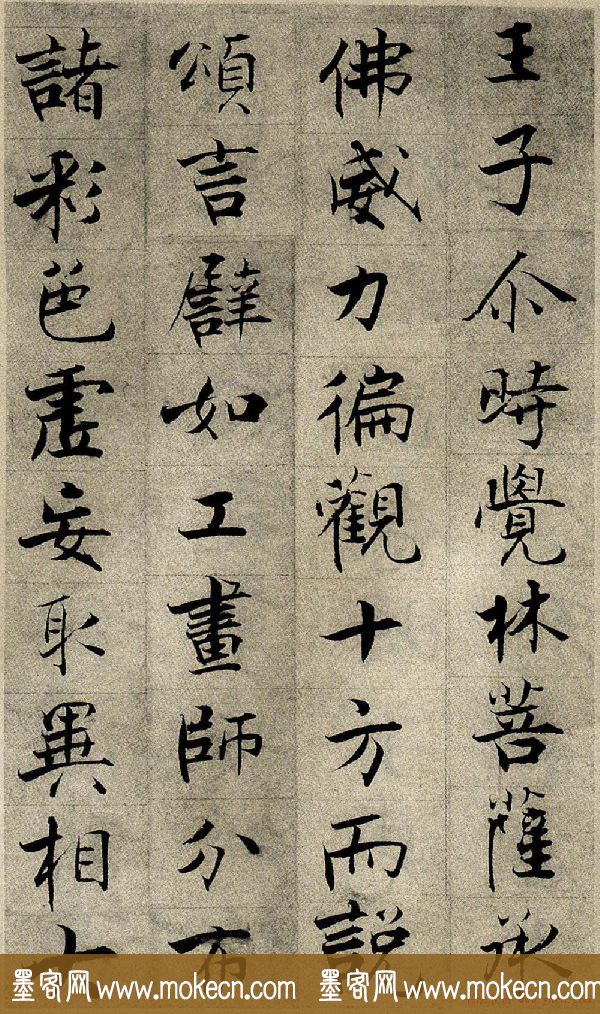 王子尒時覺林菩薩承
佛威力徧觀十方而說
頌言譬如工畫師分布
諸彩色虛妄取異相
墨客网 www.mokecn.com 墨客网 www.mokecn.com